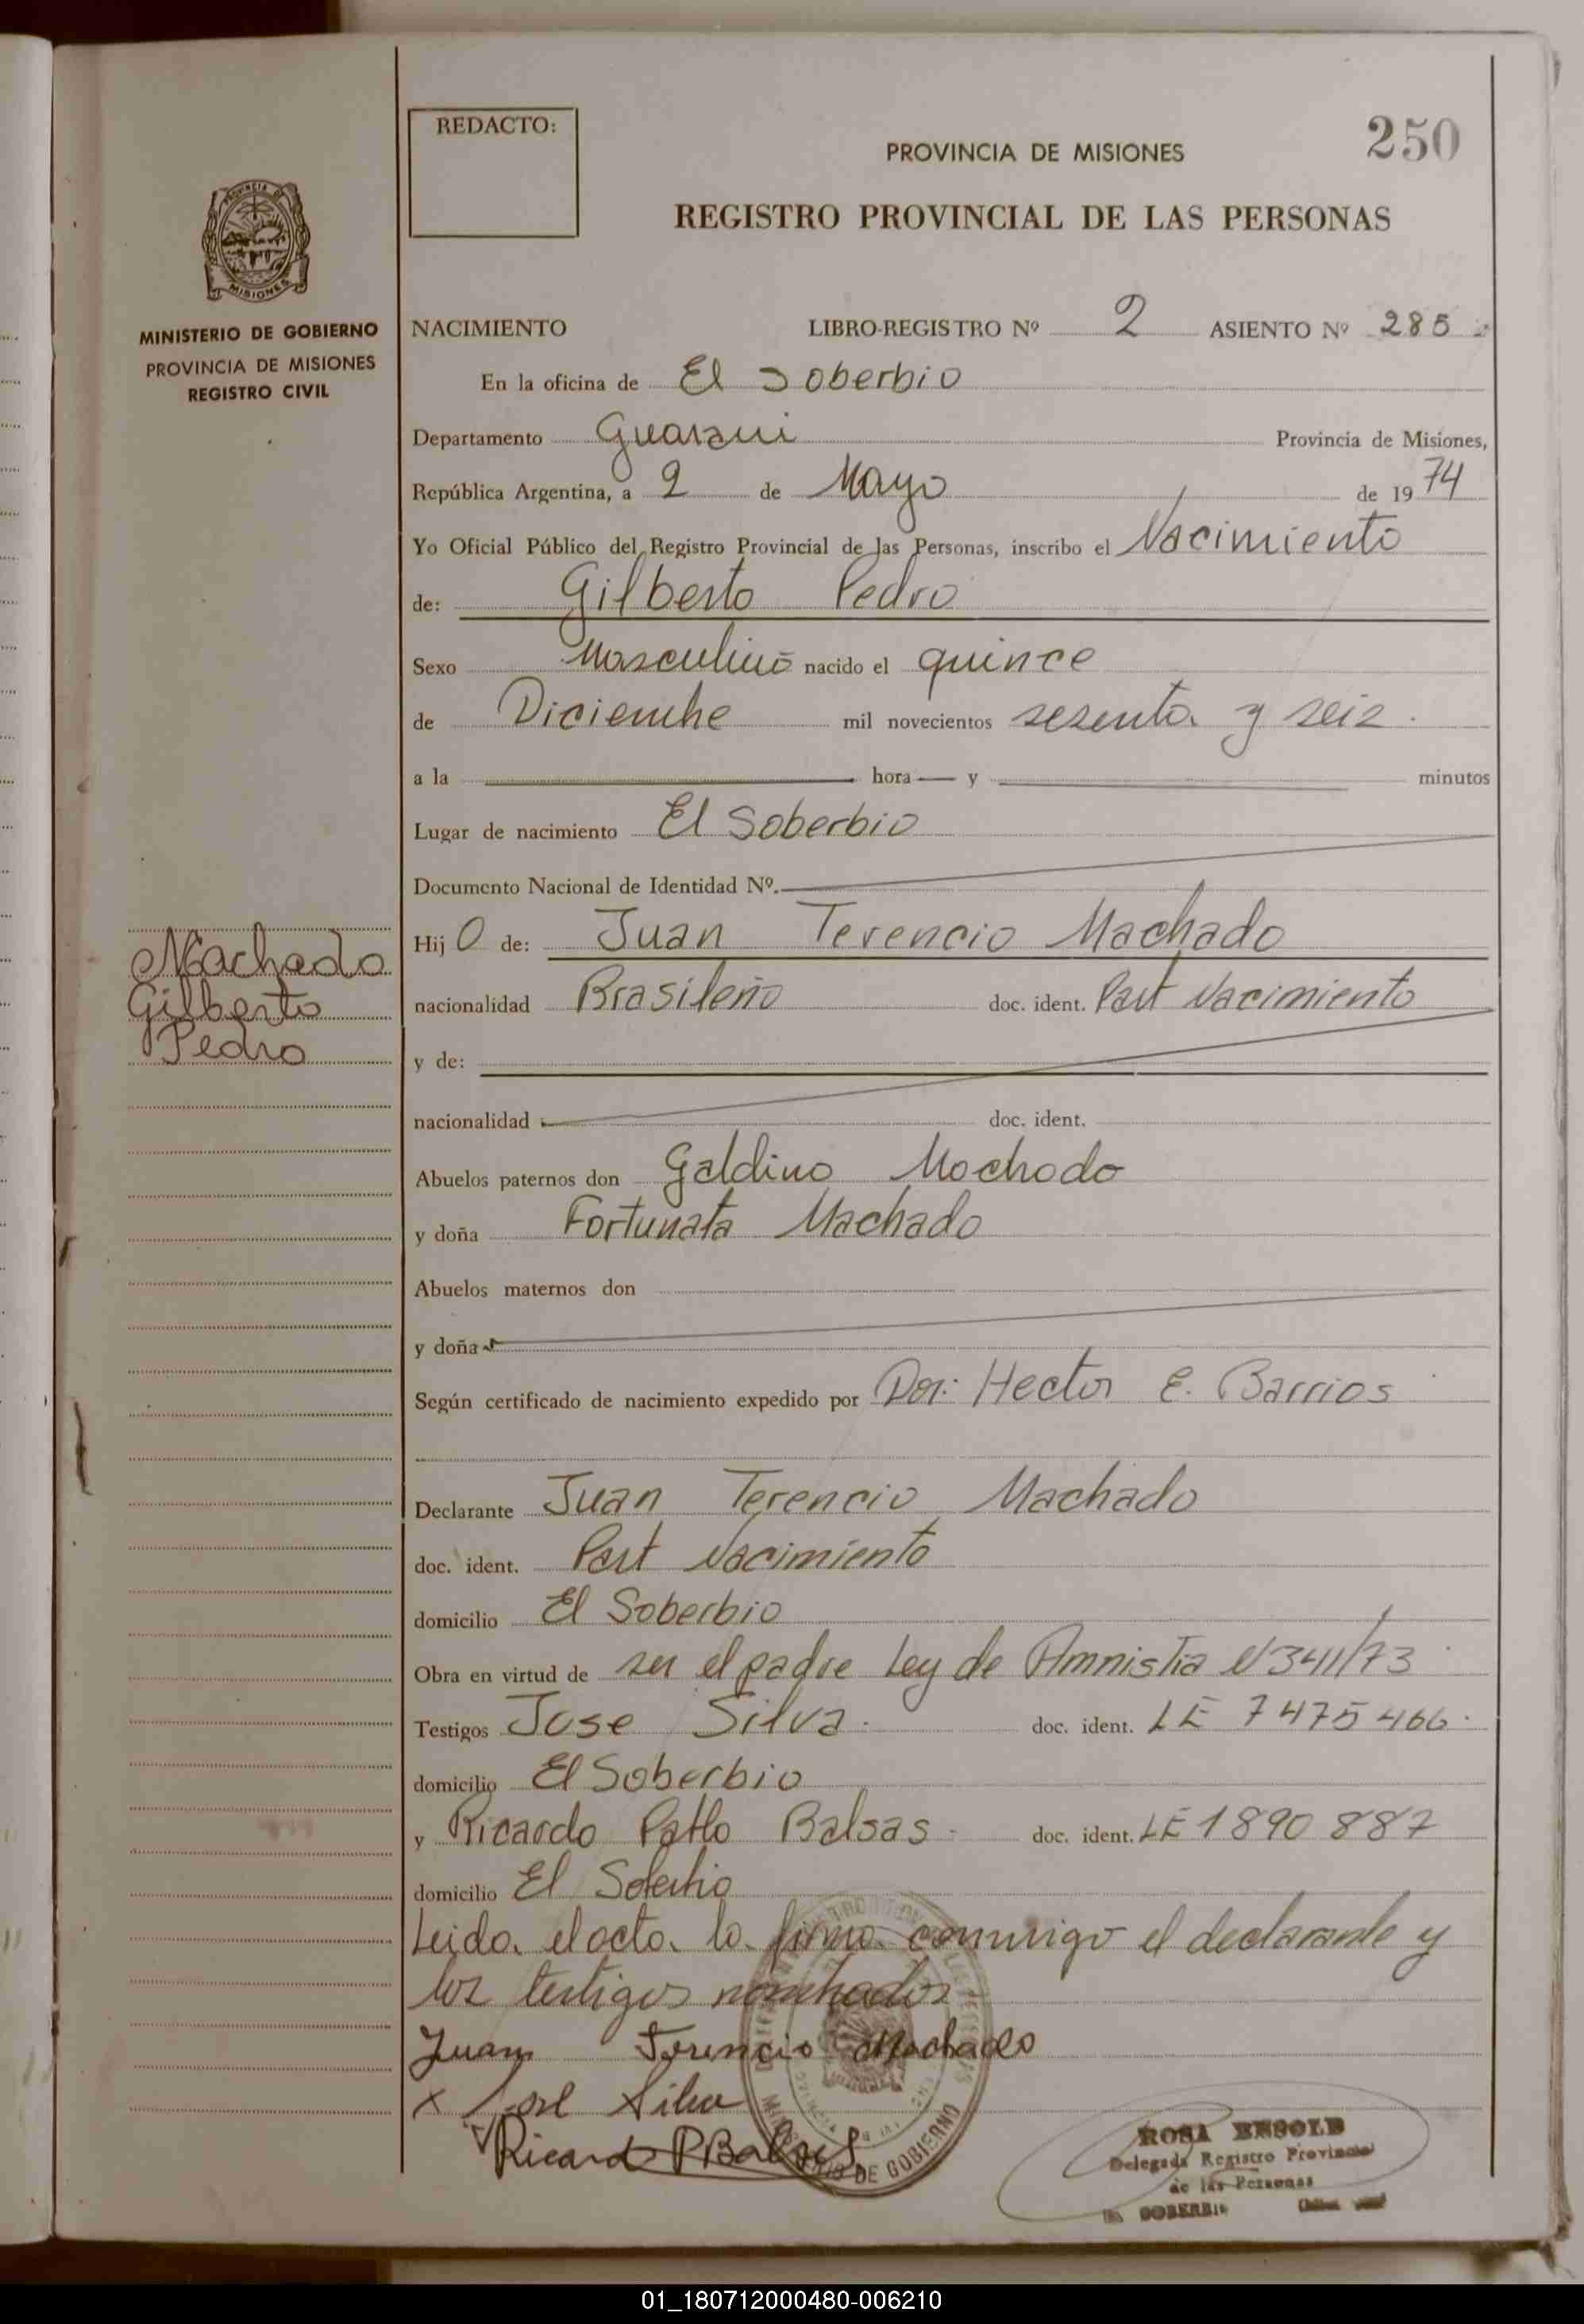 250
REDACTO:
PROVINCIA DE MISIONES
REGISTRO PROVINCIAL DE LAS PERSONAS
MISIONES
MINISTERIO DE GOBIERNO
PROVINCIA DE MISIONES
REGISTRO CIVIL
NACIMIENTO LIBRO-REGISTRO Nº 2 ASIENTO Nº 285
En la oficina de El Soberbio
Departamento Guarani Provincia de Misiones,
República Argentina, a 2 de Mayo de 1974
Yo Oficial Público del Registro Provincial de las Personas, inscribo el Nacimiento
de: Gilberto Pedro
Sexo Masculino nacido el quince
de Diciembre mil novecientos sesenta y seis.
a la hora y minutos
Lugar de nacimiento El Soberbio
Documento Nacional de Identidad Nº.
Hijo de: Juan Terencio Machado
nacionalidad Brasileño doc. ident. Part Nacimiento
Machado
Gilberto
Pedro
y de:
nacionalidad doc. ident.
Abuelos paternos don Galdino Machado
y doña Fortunata Machado
Abuelos maternos don
y doña
Según certificado de nacimiento expedido por Dor: Hector E. Barrios
Declarante Juan Terencio Machado
doc. ident. Part Nacimiento
domicilio El Soberbio
Obra en virtud de ser el padre Ley de Amnistia N 341/73
Testigos Jose Silva. doc. ident. LE 7475466.
domicilio El Soberbio
y Ricardo Pablo Balsas - doc. ident. LE 1890887
domicilio El Soberbio
Leida el acta la firma conmigo el declarante y
los testigos nombrados
Juan Terencio Machado
x José Silva
Ricardo P Balsas
DE GOBIERNO
ROSA ENGOLD
Delegada Registro Provincial
de las Personas
SOBERBIO
01_180712000480-006210